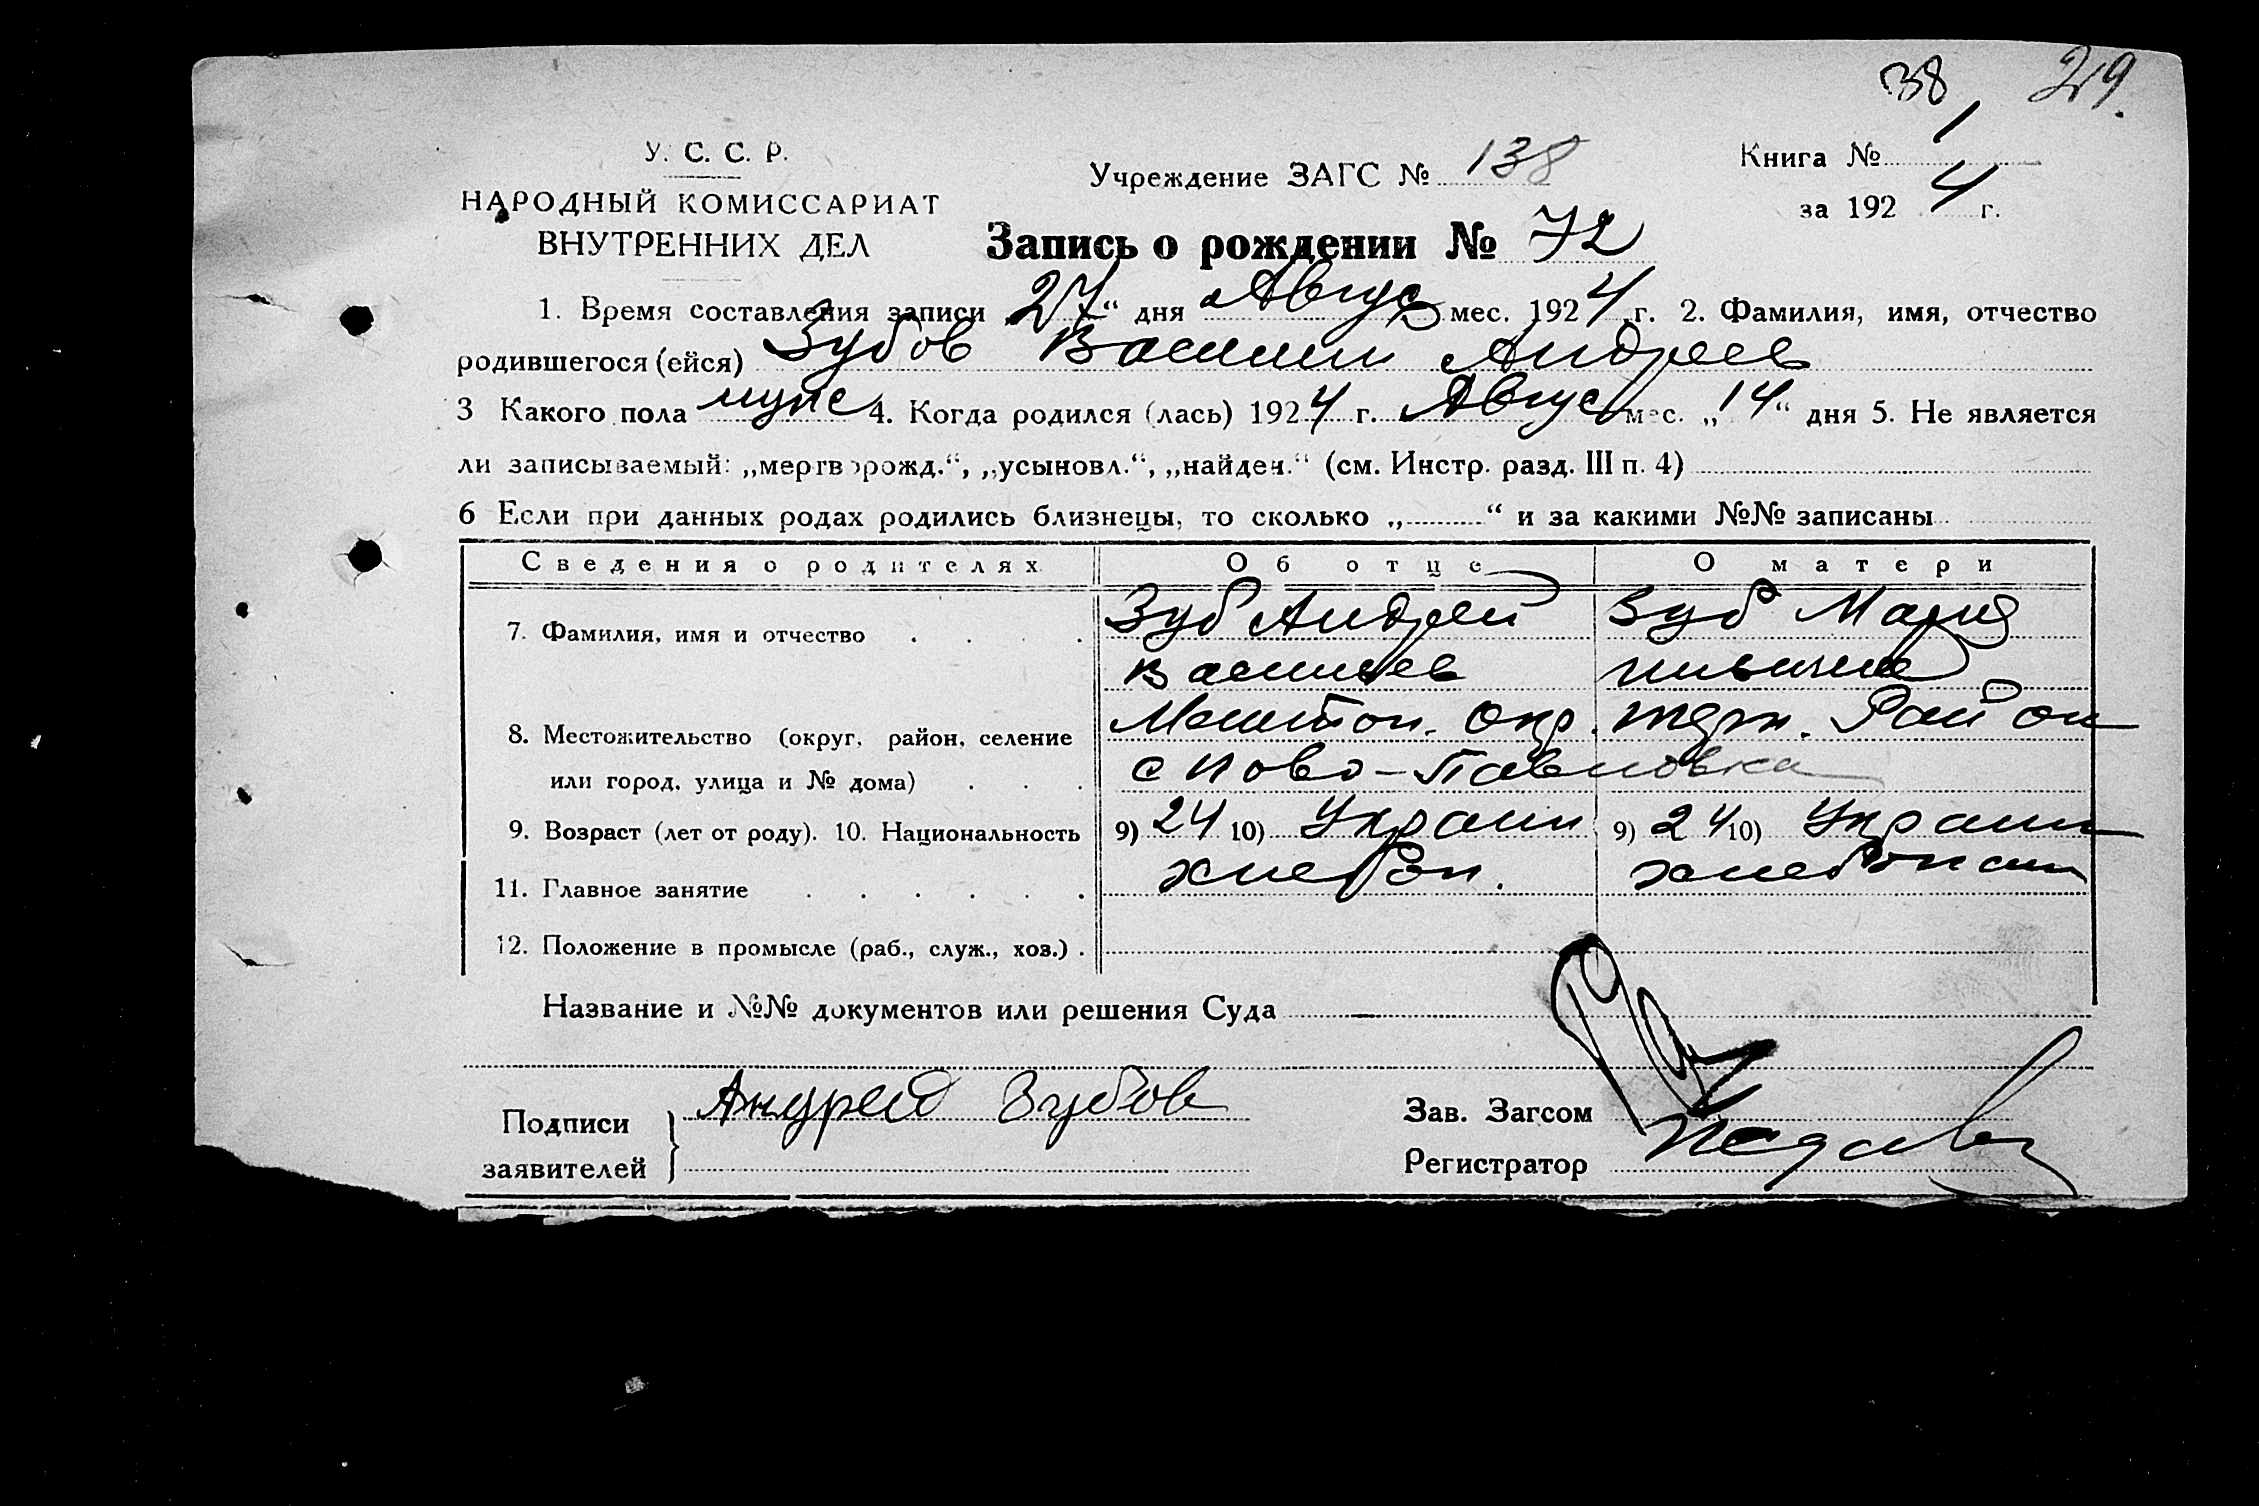 38 219.
У. С. С. Р.
НАРОДНЫЙ КОМИССАРИАТ
ВНУТРЕННИХ ДЕЛ
Учреждение ЗАГС № 138
Книга № 1
за 1924 г.
Запись о рождении № 72
1. Время составления записи „27“ дня Авгус мес. 1924 г. 2. Фамилия, имя, отчество
родившегося (ейся) Зубов Василий Андреев
3 Какого пола мужс 4. Когда родился (лась) 1924 г. Август мес. „14“ дня 5. Не является
ли записываемый: „мертворожд.“, „усыновл.“, „найден.“ (см. Инстр. разд. III п. 4)
6 Если при данных родах родились близнецы, то сколько „ “ и за какими №№ записаны
Сведения о родителях Об отце О матери
7. Фамилия, имя и отчество Зуб Андрей Зуб Мария
Васильев
8. Местожительство (округ, район, селение Окр. Район
или город, улица и № дома) с Ново-Павловка
9. Возраст (лет от роду). 10. Национальность 9) 24 10) Украин 9) 24 10) Украин
11. Главное занятие хлебоп.
12. Положение в промысле (раб., служ., хоз.)
Название и №№ документов или решения Суда
Подписи
заявителей
Андрей Зубов
Зав. Загсом
Регистратор